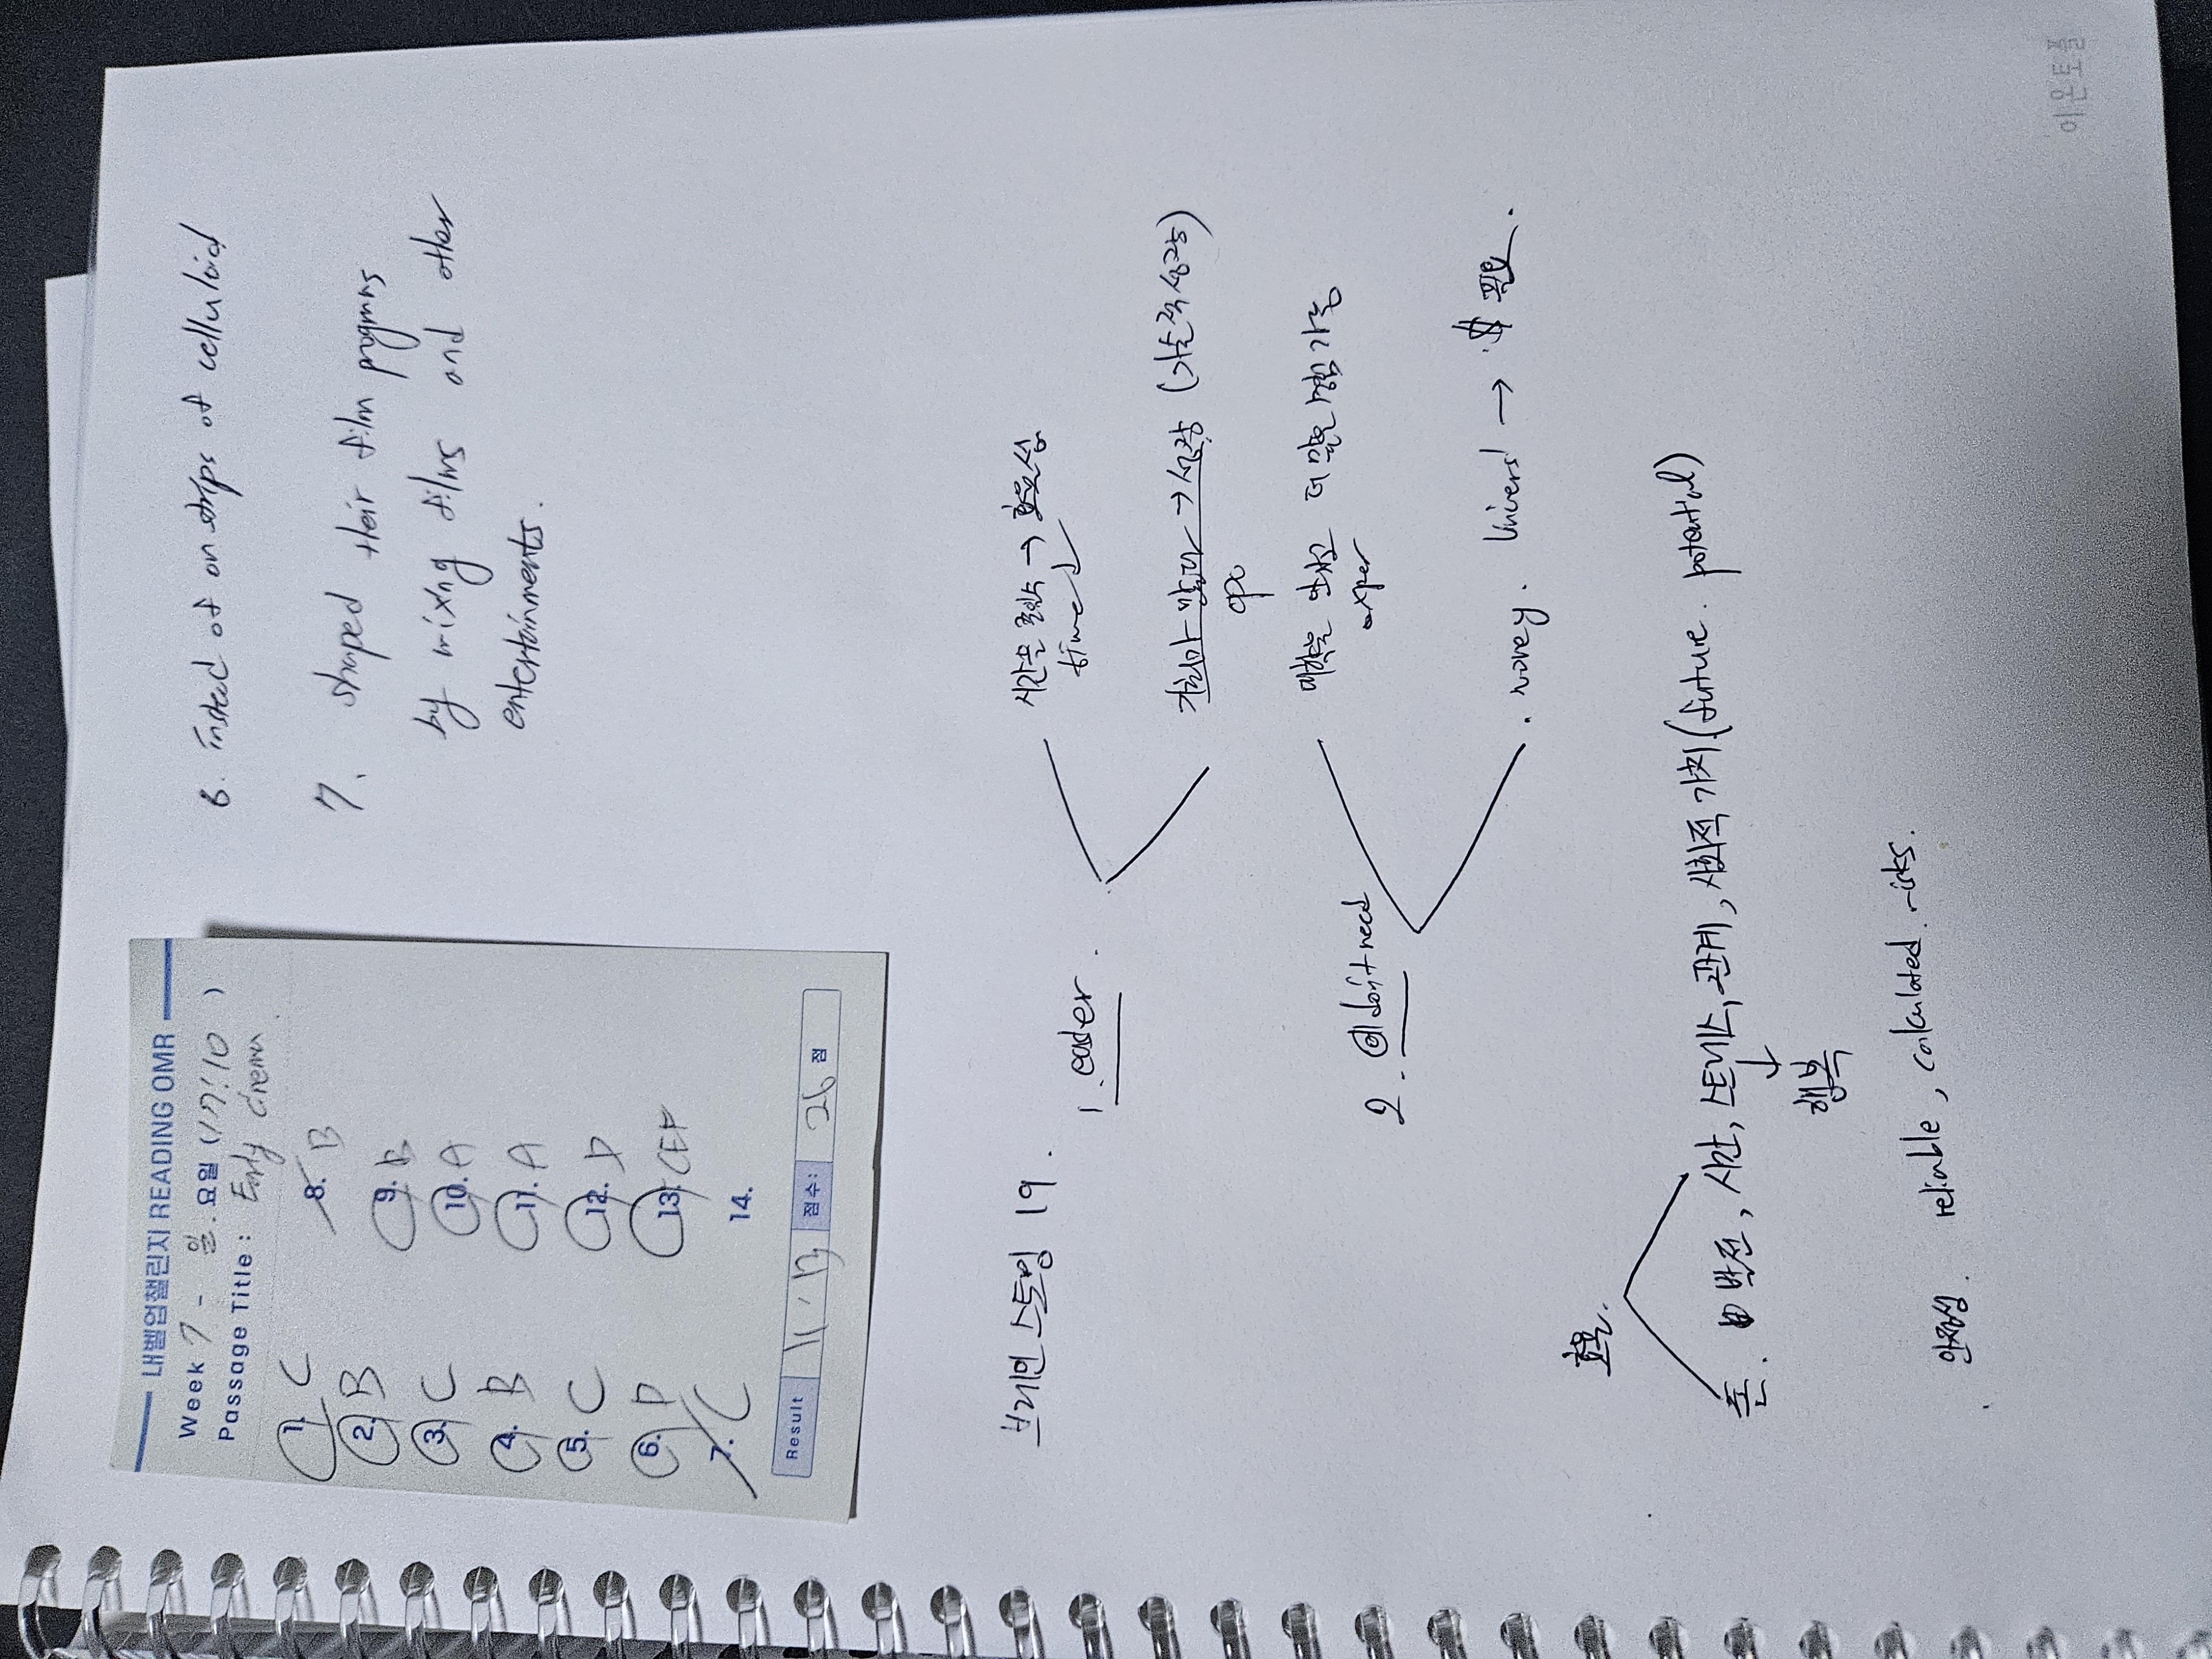 내벨업챌린지 READING OMR
Week 7 - 일.요일 (17:10)
Passage Title : Early cinema
1. C
2. B
3. C
4. B
5. C
6. D
7. C
8. B
9. B
10. A
11. A
12. D
13. CEF
14.
Result 11/13 점수: 26 점
6. instead of on strips of celluloid
7. shaped their film progrms
by mixing films and other
entertainments.
브레인 스토밍 19.
1. easier.
시간을 절약 → 효율성
time ↓
기회마다 발표 → 성장 (기존적 성격)
opo
2. don't need
더 많은 경험 가능
exper
. money. Univers → $ 필요.
효율.
돈. 발전, 시간, 스트레스, 관계, 사회적 가치 (future. potential)
↓
행복
안정성. reliable, calculated. risks.
이온토플